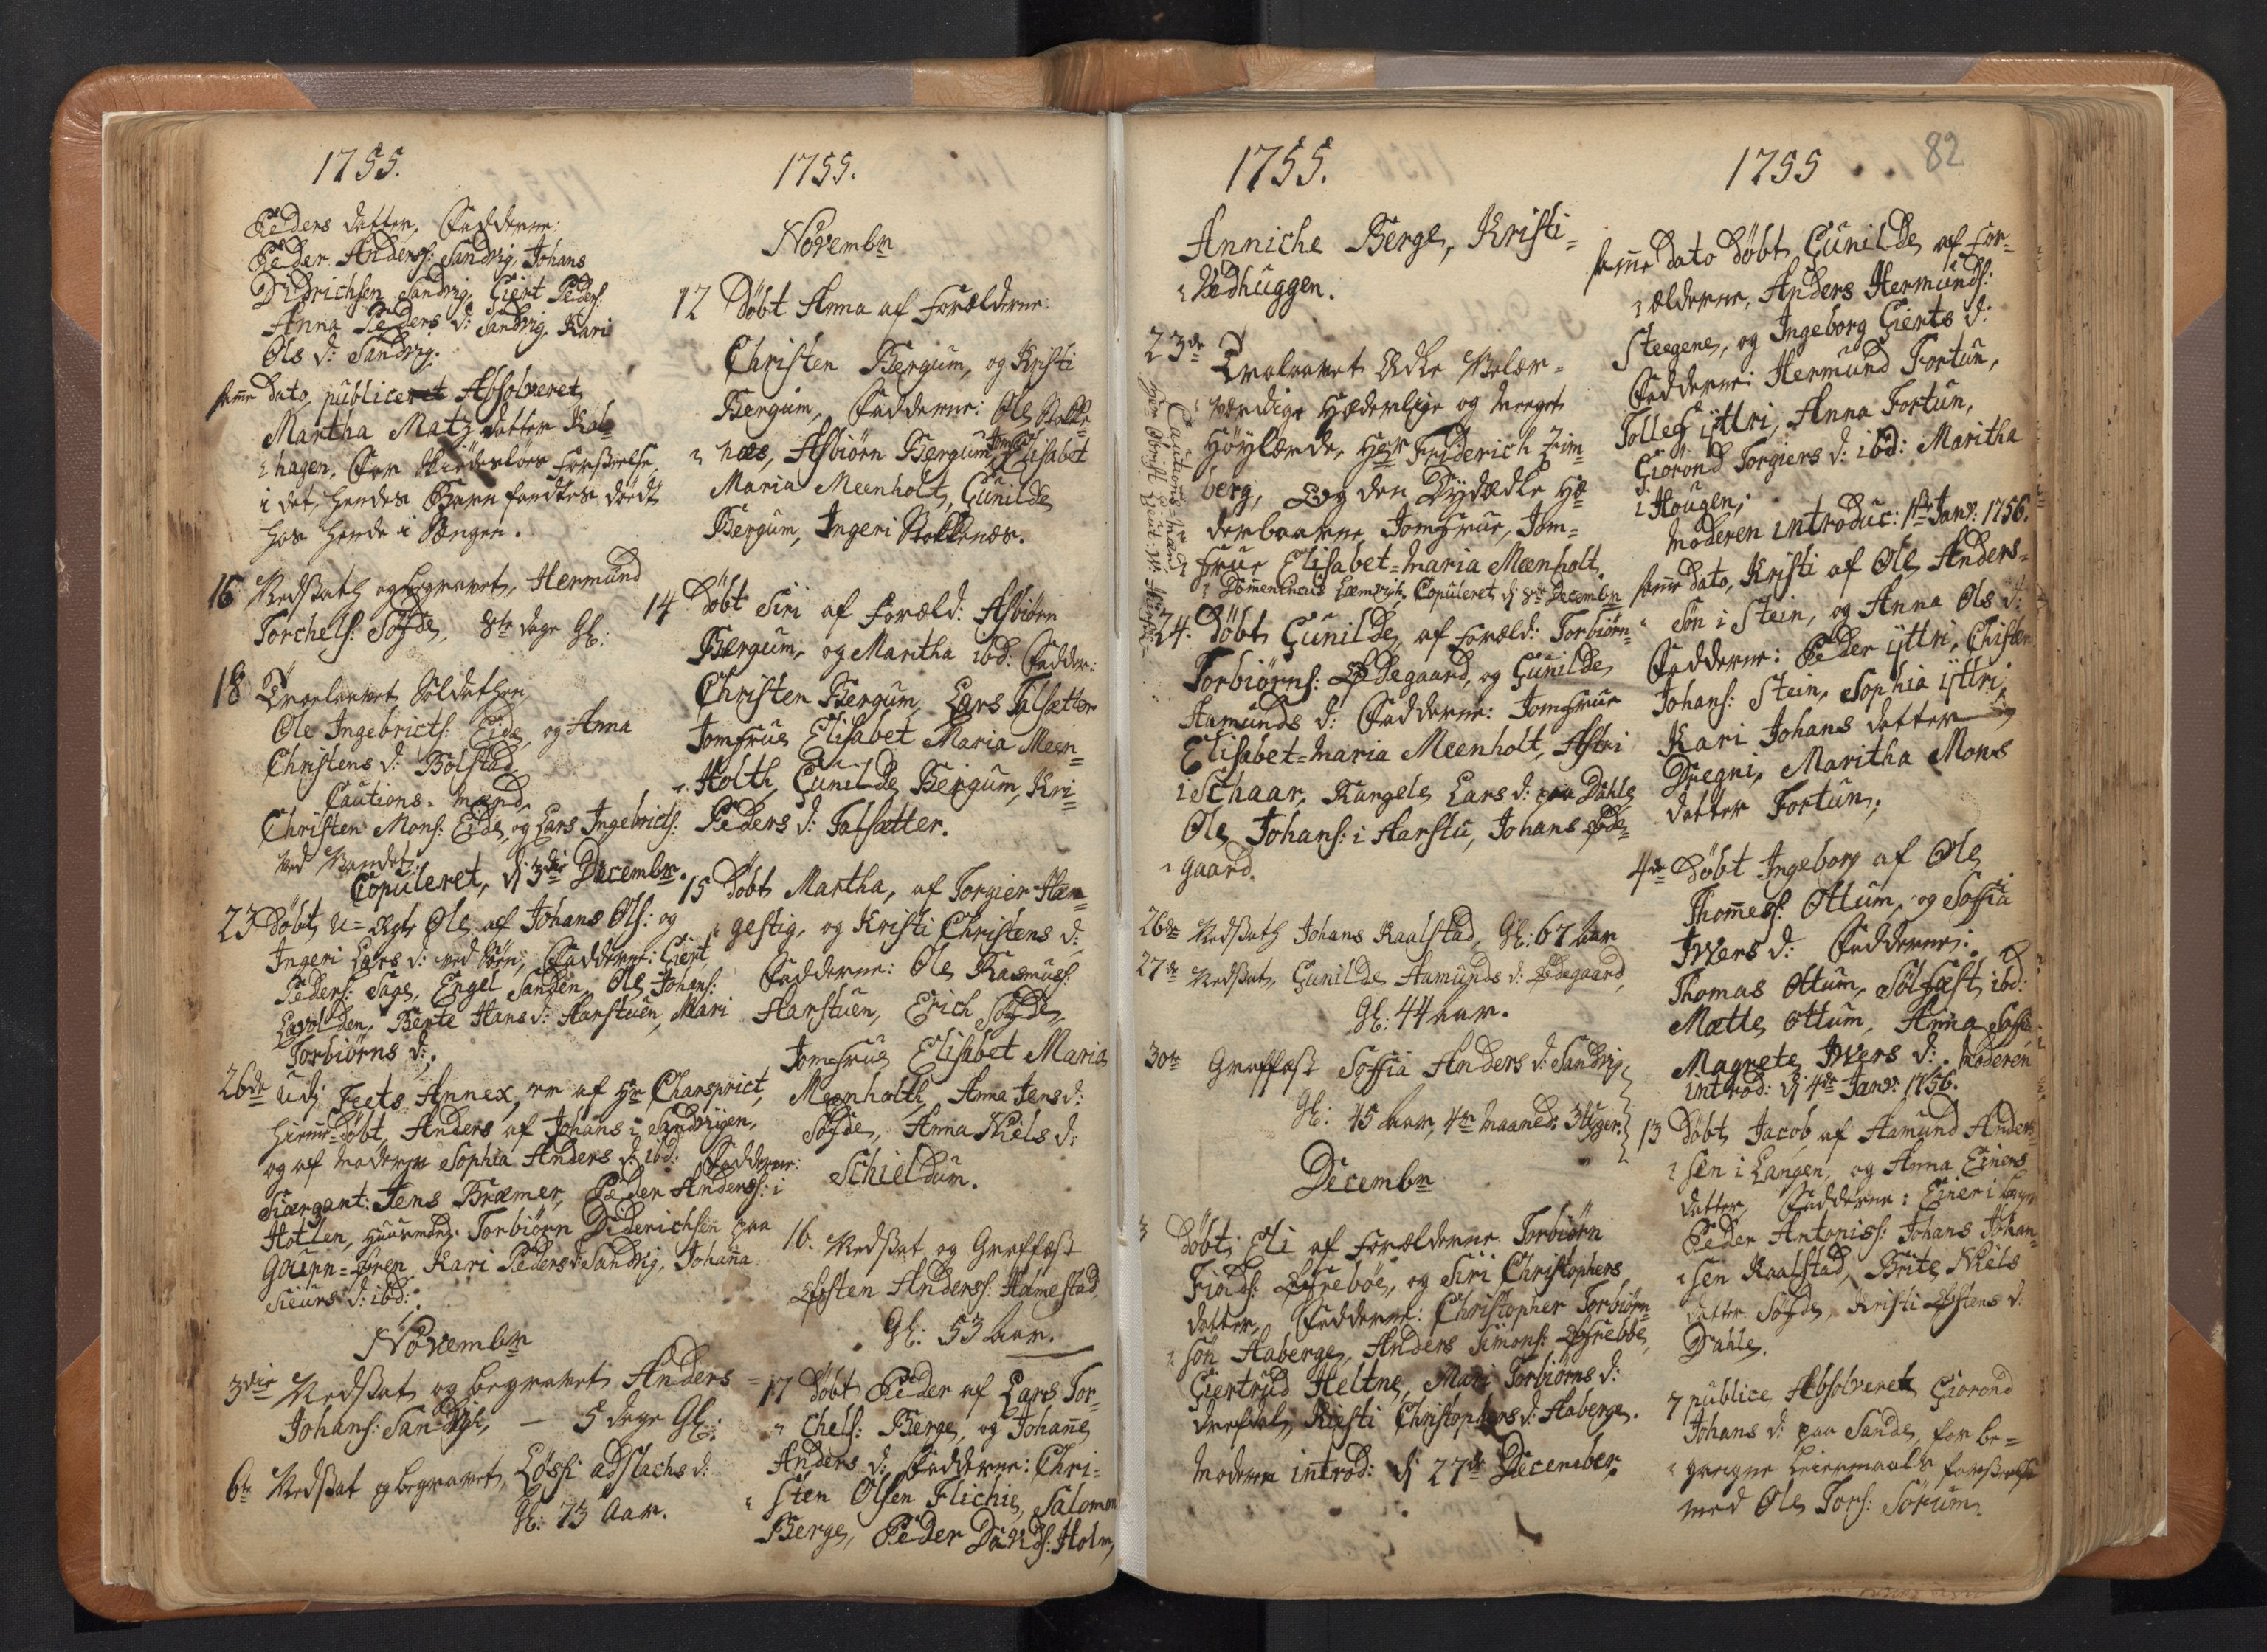 1755.
Peders datter, Fadderne:
Peder Anderss: Sandvig, Johans
Didrichsen Sandvig, Giert Peders:
Anna Peders d: Sandvig, Kari
Ols d: Sandvig.
samme dato, publiceret Absolveret
Martha Matz datter Kal-
hagen, For
i det hendes Barn fandtes dödt
hos hende i Sengen.
16 Nedsat og begravet, Hermund
Torchels: Sogde, 8te dage Gl:
18 Trolovet, Soldathen
Ole Ingebricts: Eide, og Anna
Christens d: Bolstad,
Cautions-mænd,
Christen Mons: Eide, og Lars Ingebricts:
Copuleret, d: 3die Decembr.
23 Döbt, u-ægte Ole, af Johans Ols: og
Ingeri Lars d: ved Fadderne: Giert
Peders: Sage, Engel Sanden, Ole Johans:
Berte Hans d: Harstuen, Mari
Torbiörns d:,
26de udj Feets Annex, af Hr
hiemme-döbt, Anders af Johans i Sandvigen,
og af moderen Sophia Anders d: ibd: Fadderne:
Siergant: Jens Bræmer, Peder Anderss: i
Hotlen, Torbiörn Diderichsen paa
Kari Peders d: Sandvig, Johanna
Sieurs d: ibd:
Novembr
3die Nedsat og begravet Anders
Johans: Sandvig, — 5 dage Gl:
6te Nedsat og begravet, d:
Gl: 73 Aar.
1755.
Novembr
12 Döbt Anna af Forælderne
Christen Bergum, og Kristi
Bergum, Fadderne: Ole Stokke-
næs, Asbiörn Bergum, Jomfr Elisabet
Maria Meenholt, Gunilde
Bergum, Ingeri Stokkenæs.
14 Döbt Siri af Foræld: Asbiörn
Bergum, og Maritha ibd: Fadder:
Christen Bergum, Lars Talsætter
Jomfrue Elisabet Maria Meen-
Holth, Gunilde Bergum, Kri-
Peders d: Talsætter.
15 Döbt Martha, af Torgier Hæn-
gestig, og Kristi Christens d:,
Fadderne: Ole Rasmuss:
Harstuen, Erich Sogde,
Jomfrue Elisabet Maria
Meenholth, Anna Jens d:
Sogde, Anna Niels d:
Schieldum.
16. Nedsat og Græffæst
Östen Anderss: Hamestad,
Gl: 53 Aar.
17 Döbt Peder af Lars Tor-
chels: Berge, og Johanne
Anders d: Fadderne: Chri-
sten Olsen Flichie, Salomon
Berge, Peder Davids: Holm,
1755.
Anniche Berge, Kristi-
Vedhuggen.
23de Trolovet Ædle Velær-
værdige Hæderlige og meeget
Höylærde, Herr Friderich Zim-
berg, Og den Dydædle Hæ-
derbaarne Jomfrue, Jom-
frue Elisabet-maria Meenholt,
Cautions-mænd
Lemvigh, Copuleret d: 8de Decembr
24. Döbt Gunilde, af Foræld: Torbiörn
Torbiörns: Ödegaard, og Gunilde
Aamunds d: Fadderne: Jomfrue
Elisabet-maria Meenholt, Astri
i Schaar, Rangele Lars d: paa Dahle,
Ole Johans: i Harstu, Johans Öde-
gaard.
26de Nedsath Johans Raalstad, Gl: 67 Aar
27de Nedsat, Gunilde Aamunds d: Ödegaard,
Gl: 44 aar.
30te Græffæst Soffia Anders d: Sandvig,
Gl: 45 Aar, 4re Maaneder 3 Uger.
Decembr
3 Döbt, Eli af Forælderne Torbiörn
Finds: Öfreböe, og Siri Christophers
datter, Fadderne: Christopher Torbiörn
sön Aaberge, Anders Simons: Öfreböe,
Giertrud Heltne, Mari Torbiörns d:
Drefdal, Kristi Christophers d: Aaberge.
Moderen introd: d: 27de December.
1755
82
samme dato Döbt Gunilde af For-
ælderne, Anders Hermunds:
Steegene, og Ingeborg Gierts d:
Fadderne: Hermund Fortun,
Tollef Yttri, Anna Fortun,
Giörond Torgiers d: ibd: Maritha
i Hougen,
Moderen introduc: 1ste Janv: 1756.
samme dato, Kristi af Ole Anders-
sön i Stein, og Anna Ols d:
Fadderne: Peder Yttri, Christen
Johans: Stein, Sophia Yttri,
Kari Johans datter
Dregni, Maritha Mons
datter Fortun,
4de Döbt Ingeborg af Ole
Thomess: Ottum, og Soffia
Ivers d: Fadderne:
Thomas Ottum, Sölfæst ibd:
Mætte Ottum, Anna
Magrete Ivers d: Moderen
introd: d: 4de Janv: 1756.
13 Döbt, Jacob af Aamund Anders-
sen i Langen, og Anna Einers
datter, Fadderne: Einer i
Peder Antoniss: Johans Johan-
sen Raalstad, Brite Niels
datter Sogde, Kristi Östens d:
Dahle.
7 publice Absolveret Giorond
Johans d: paa Sande, for be-
gangne Leiermaals forseelse
med Ole Tors: Sörum.